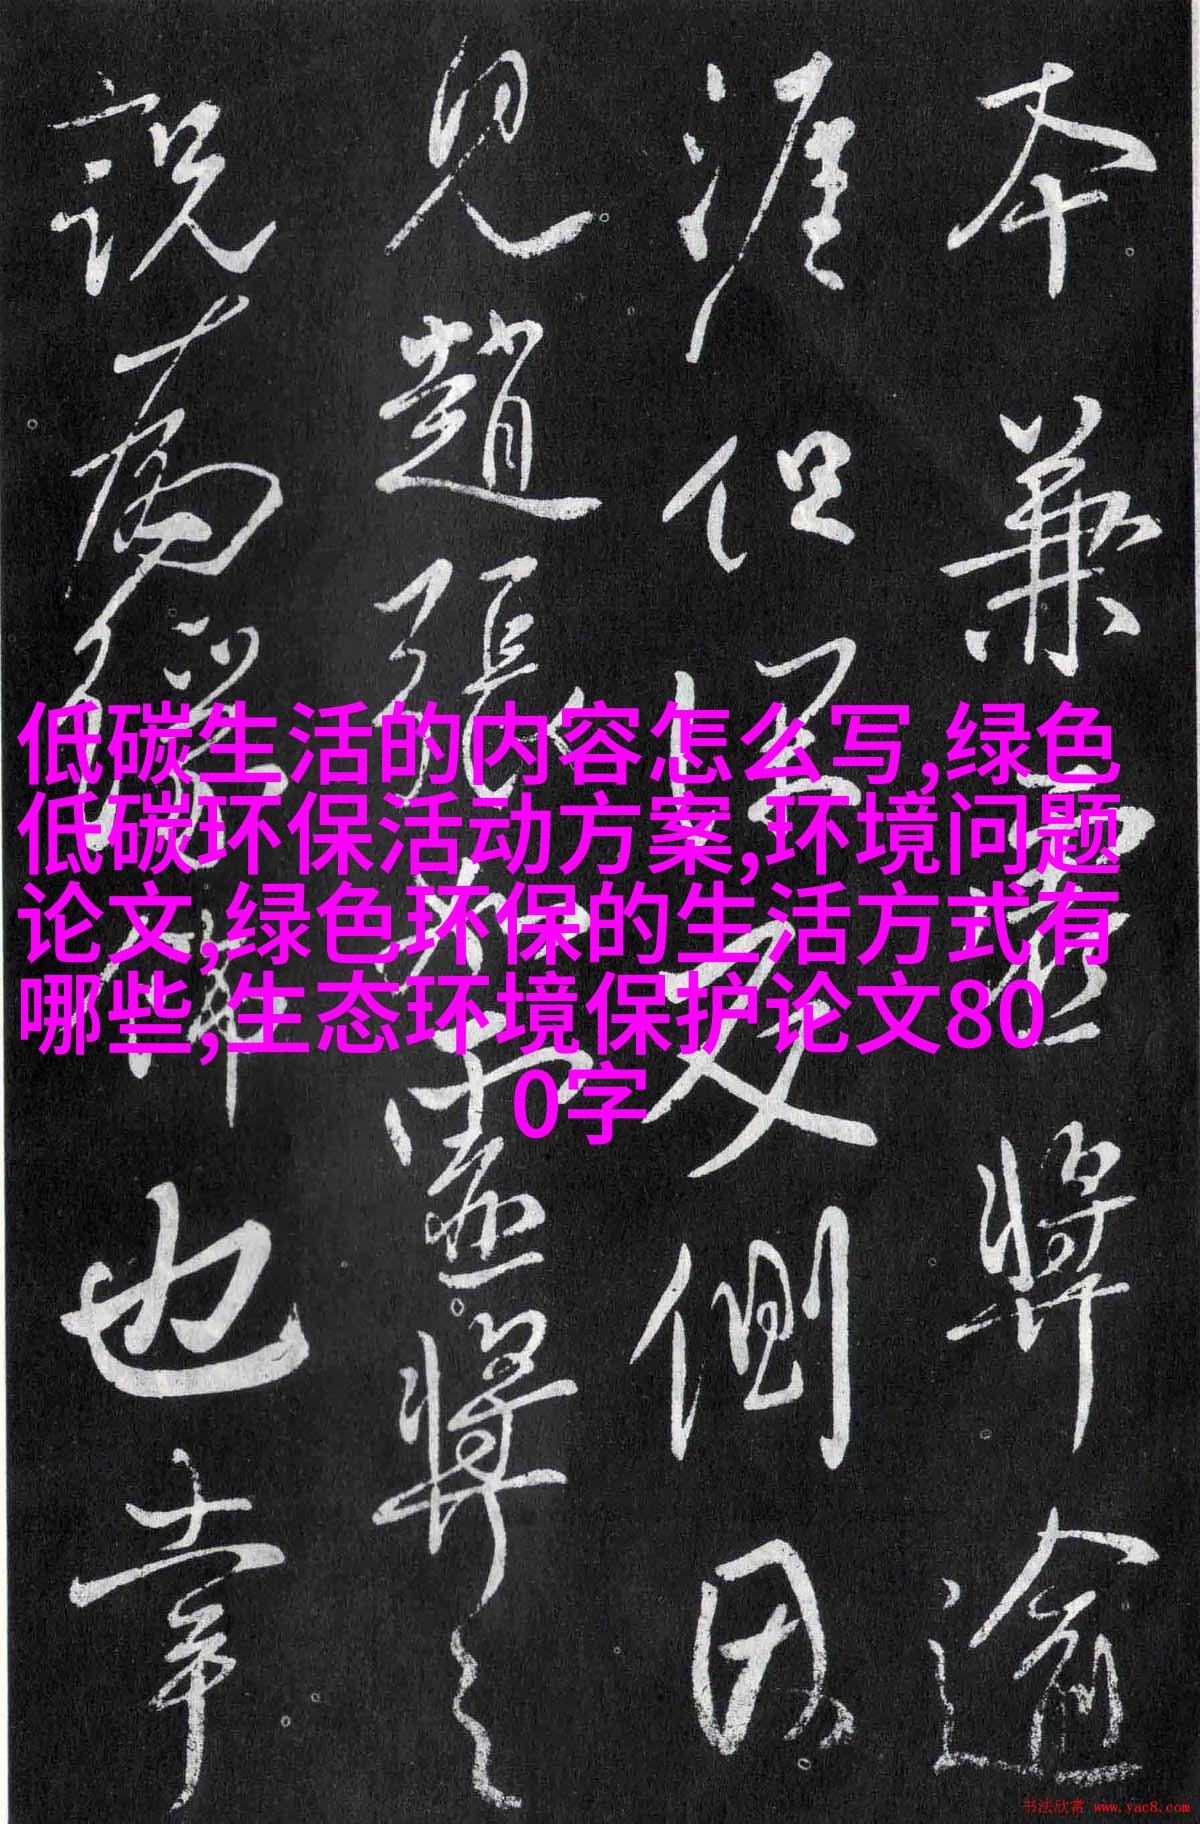 低碳生活的内容怎么写,绿色
低碳环保活动方案,环境问题
论文,绿色环保的生活方式有
哪些,生态环境保护论文80
0字
本兼將逾
涯但反側因
見趙張將之
説也章
书法欣赏 www.yac8.com